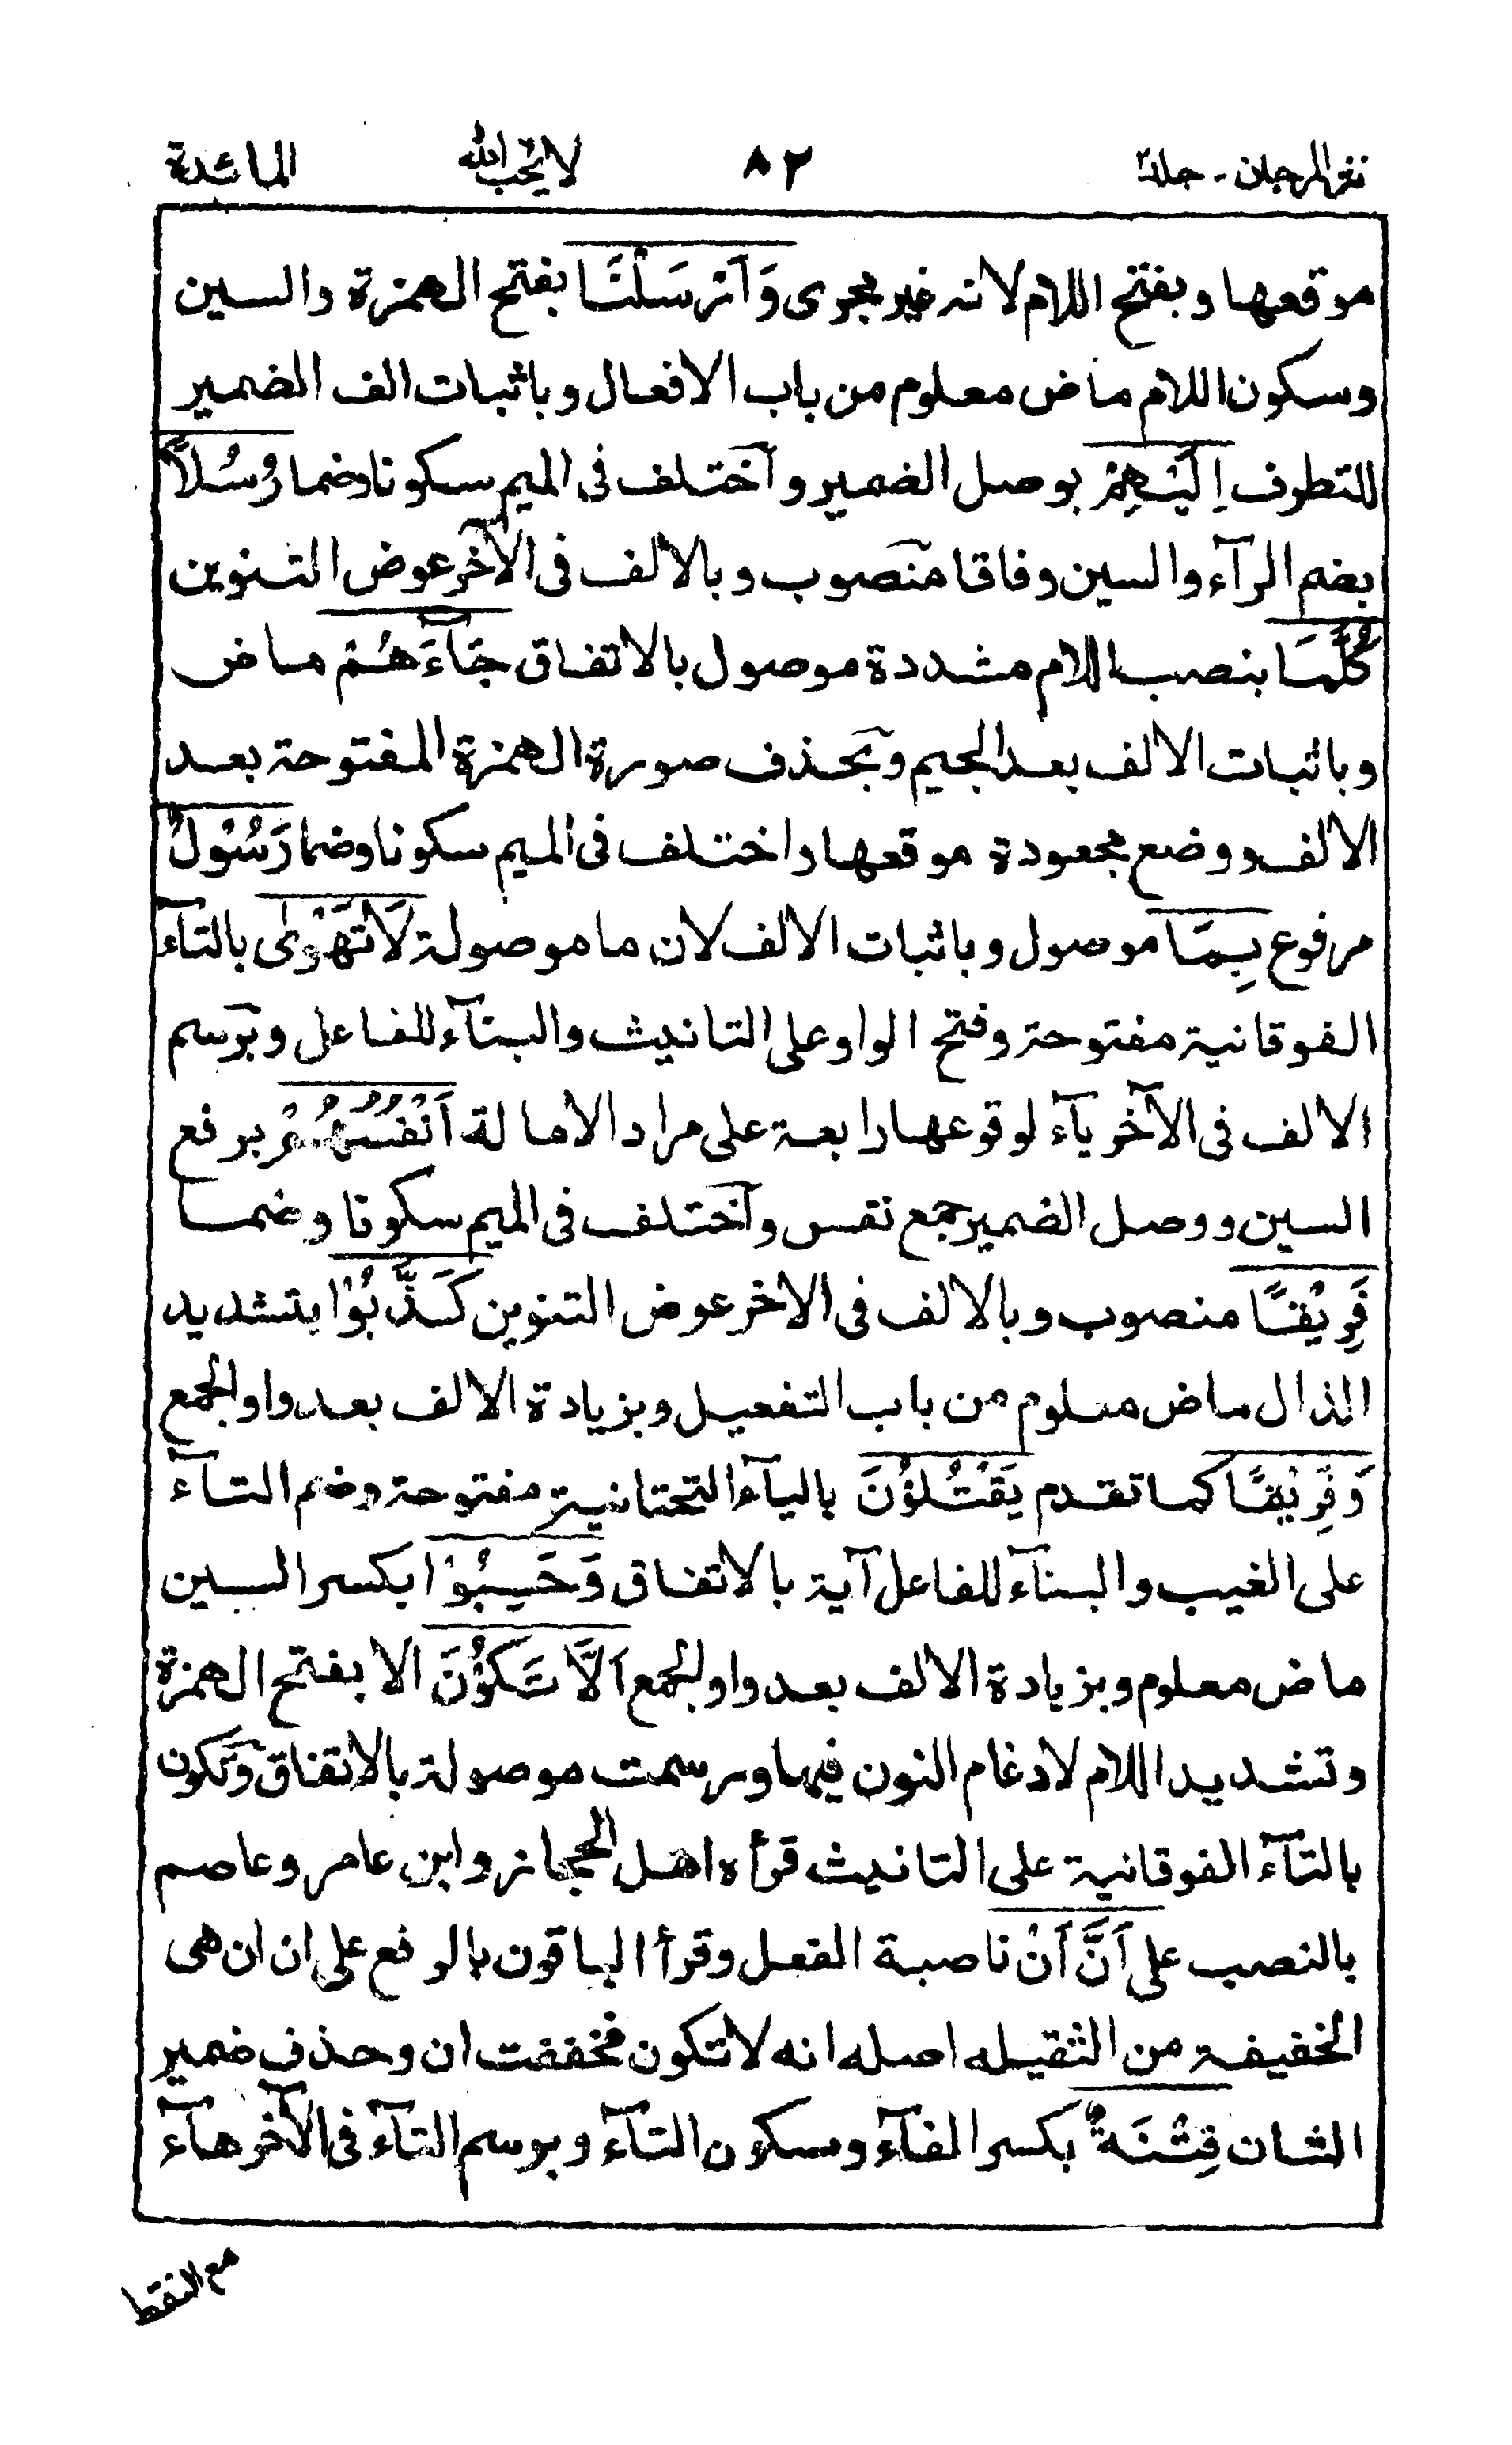 نثر المرجان - جلد٢ ٨٢ لا يحب الله المائدة
موقعها وبفتح اللام لانه غير مجرى وَاَرْسَلْنَا بفتح الهمزة والسين
وسكون اللام ماض معلوم من باب الافعال وباثبات الف الضمير
للتطرف اِلَيْهِمْ بوصل الضمير وآختلف فى الميم سكونا وضما رُسُلًا
بضم الرآء والسين وفاقا منصوب وبالالف فى الآخر عوض التنوين
كُلَّمَا بنصب اللام مشددة موصول بالاتفاق جَآءَهُمْ ماض
وباثبات الالف بعد الجيم وبحذف صورة الهمزة المفتوحة بعد
الالف ووضع مجعودة موقعها واختلف فى الميم سكونا وضما رَسُوْلٌ
مرفوع بِمَا موصول وباثبات الالف لان ما موصولة لَا تَهْوٰى بالتآء
الفوقانية مفتوحة وفتح الواو على التانيث والبنآء للفاعل وبرسم
الالف فى الآخر يآء لوقوعها رابعة على مراد الامالة اَنْفُسُهُمْ برفع
السين ووصل الضمير جمع نفس وآختلف فى الميم سكونا وضما
فَرِيْقًا منصوب وبالالف فى الاخر عوض التنوين كَذَّبُوْا بتشديد
الذال ماض معلوم من باب التفعيل وبزيادة الالف بعد واو الجمع
وَفَرِيْقًا كما تقدم يَقْتُلُوْنَ بالياء التحتانية مفتوحة وضم التآء
على الغيب والبنآء للفاعل آية بالاتفاق وَحَسِبُوْا بكسر السين
ماض معلوم وبزيادة الالف بعد واو الجمع اَلَّا تَكُوْنَ الا بفتح الهمزة
وتشديد اللام لادغام النون فيها ورسمت موصولة بالاتفاق وتكون
بالتآء الفوقانية على التانيث قرأه اهل الحجاز وابن عامر وعاصم
بالنصب على اَنَّ اَنْ ناصبة الفعل وقرأ الباقون بالرفع على ان ان هى
الخفيفة من الثقيله اصله انه لا تكون فخففت ان وحذف ضمير
الشان فِتْنَةٌ بكسر الفآء وسكون التآء وبرسم التآء فى الآخر هآء
مع النقط